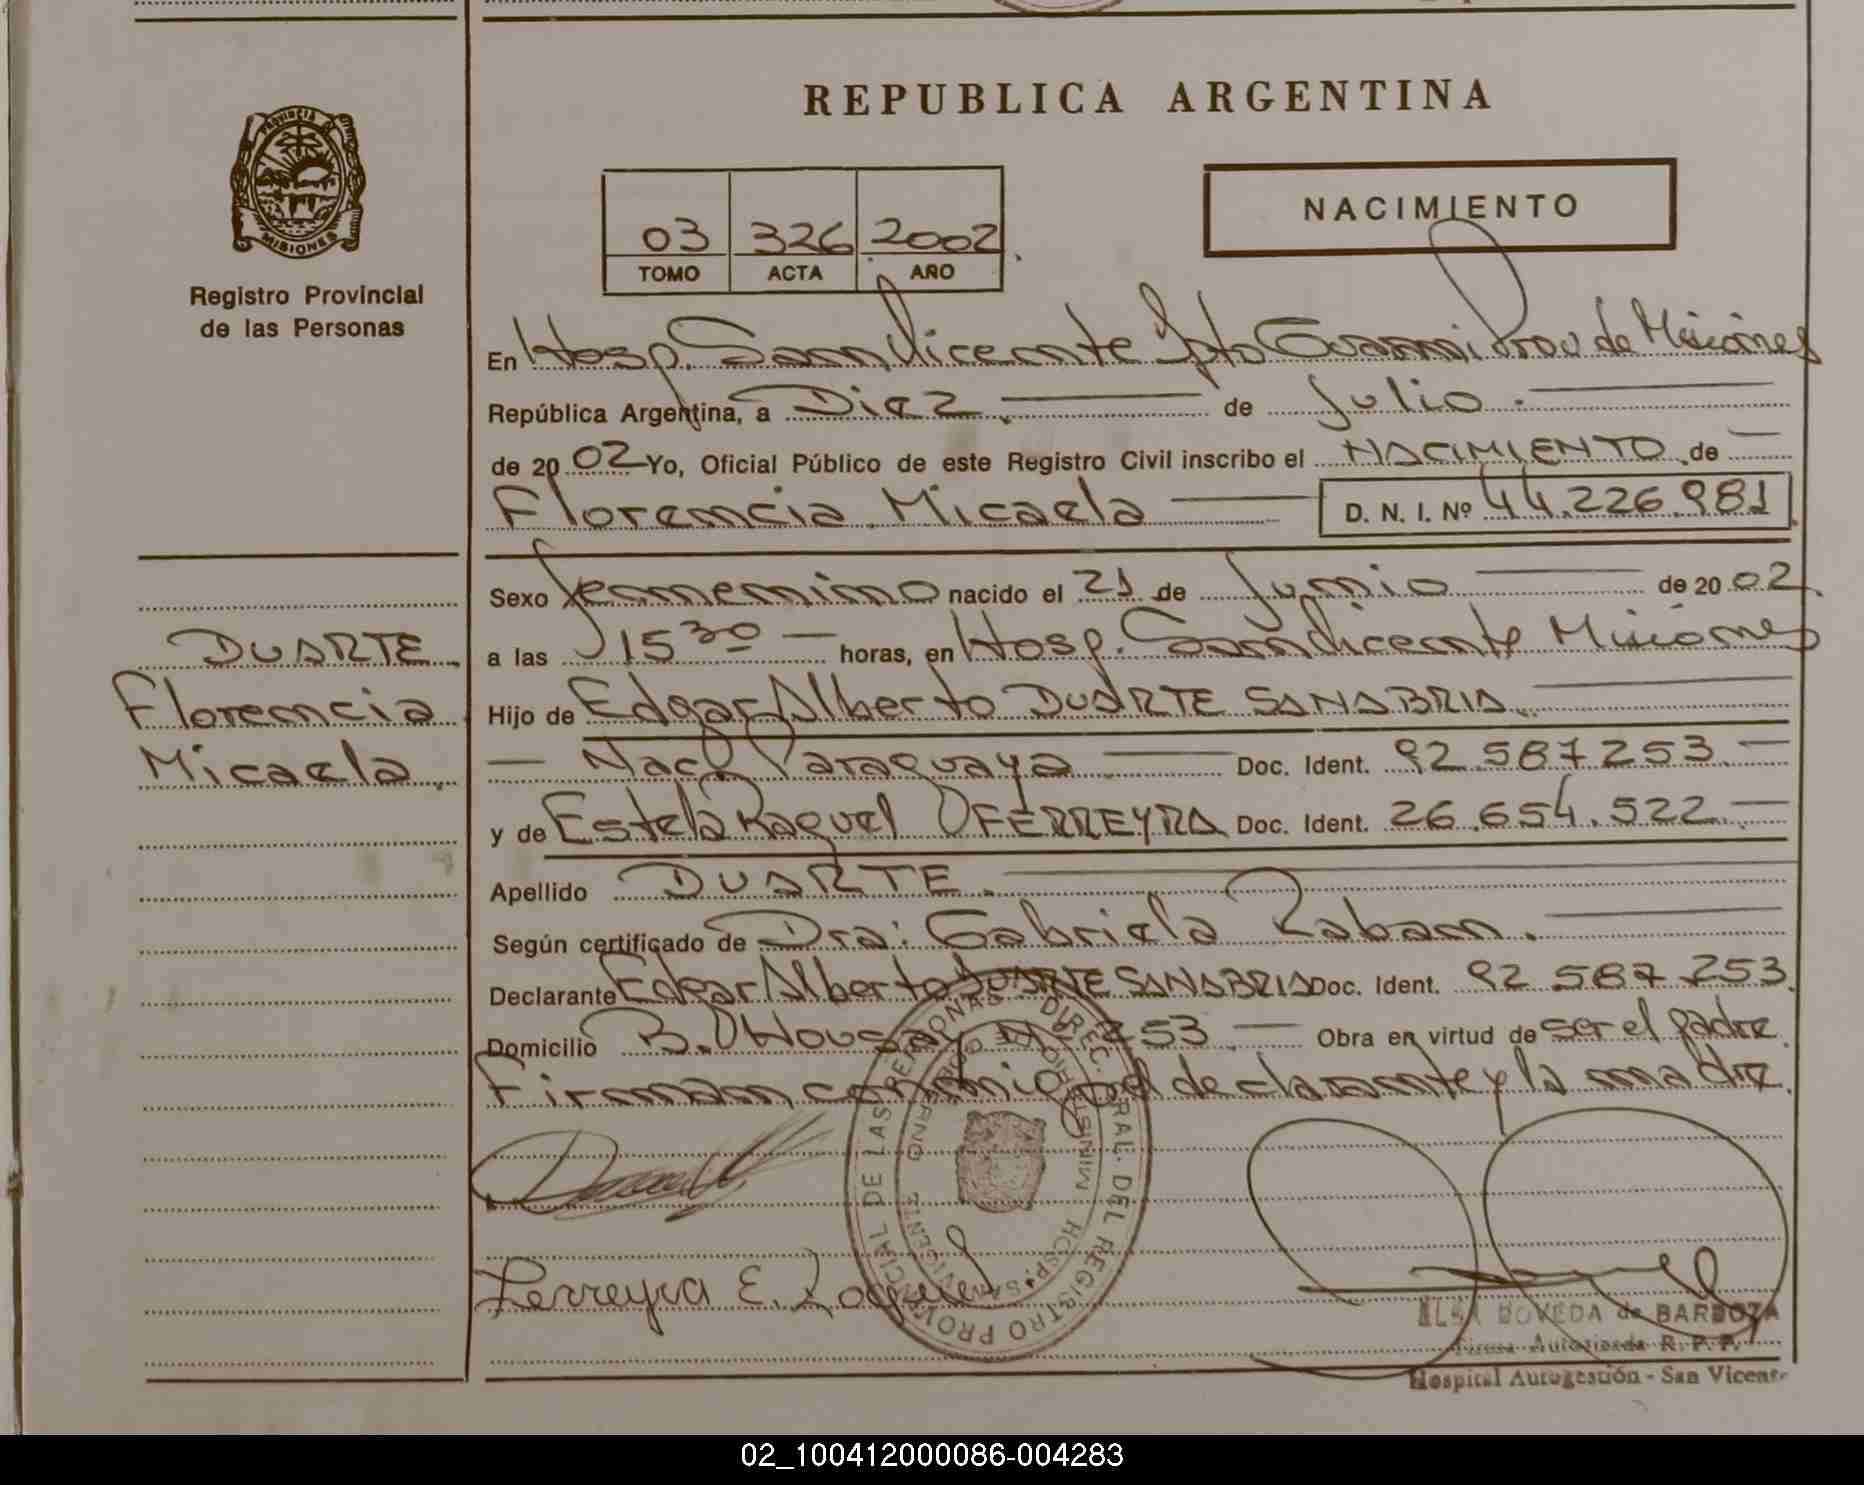 REPUBLICA ARGENTINA
PROVINCIA DE MISIONES
Registro Provincial
de las Personas
03 326 2002.
TOMO ACTA AÑO
NACIMIENTO
En Hosp. San Vicente Dpto Guarani Prov de Misiones
República Argentina, a Diez. de Julio.
de 20 02 Yo, Oficial Público de este Registro Civil inscribo el NACIMIENTO de
Florencia Micaela D. N. I. Nº 44.226.981
Sexo femenino nacido el 21 de Junio de 20 02.
a las 15 30 horas, en Hosp. San Vicente Misiones
Hijo de Edgar Alberto DUARTE SANABRIA.
Nac. Paraguaya Doc. Ident. 92.587.253.
y de Estela Raquel FERREYRA Doc. Ident. 26.654.522.
Apellido DUARTE.
Según certificado de Dra: Gabriela Raban.
Declarante Edgar Alberto DUARTE SANABRIA Doc. Ident. 92.587.253.
Domicilio B. Houssay Nº 253. Obra en virtud de ser el padre.
Firman conmigo el declarante y la madre.
DUARTE
Florencia
Micaela.
Ferreyra E. Raquel
DIREC. GRAL. DEL REGISTRO PROVINCIAL DE LAS PERSONAS
MINISTERIO DE GOBIERNO
HOSP. SAN VICENTE
ELSA BOVEDA de BARBOZA
Firma Autorizada R. P. P.
Hospital Autogestión - San Vicente
02_100412000086-004283